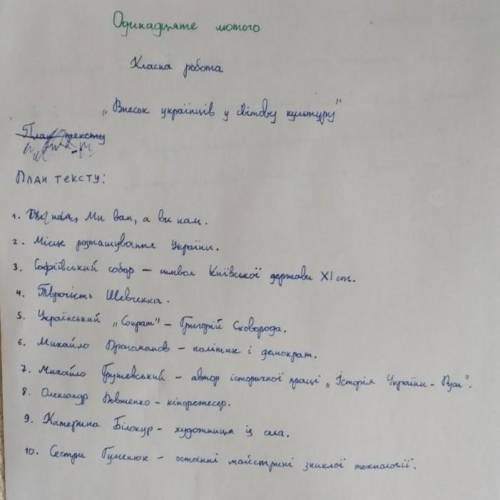 Одинадцяте лютого
Класна робота
„Внесок українців у світову культуру"
План тексту
План тексту:
1. Ми вам, а ви нам.
2. Місце розташування України.
3. Софіївський собор – символ Київської держави XI ст.
4. Творчість Шевченка.
5. Український „Сократ" – Григорій Сковорода.
6. Михайло Драгоманов – політик і демократ.
7. Михайло Грушевський – автор історичної праці „Історія України - Руси".
8. Олександр Довженко – кінорежисер.
9. Катерина Білокур – художниця із села.
10. Сестри Гуменюк – останні майстрині зниклої технології.